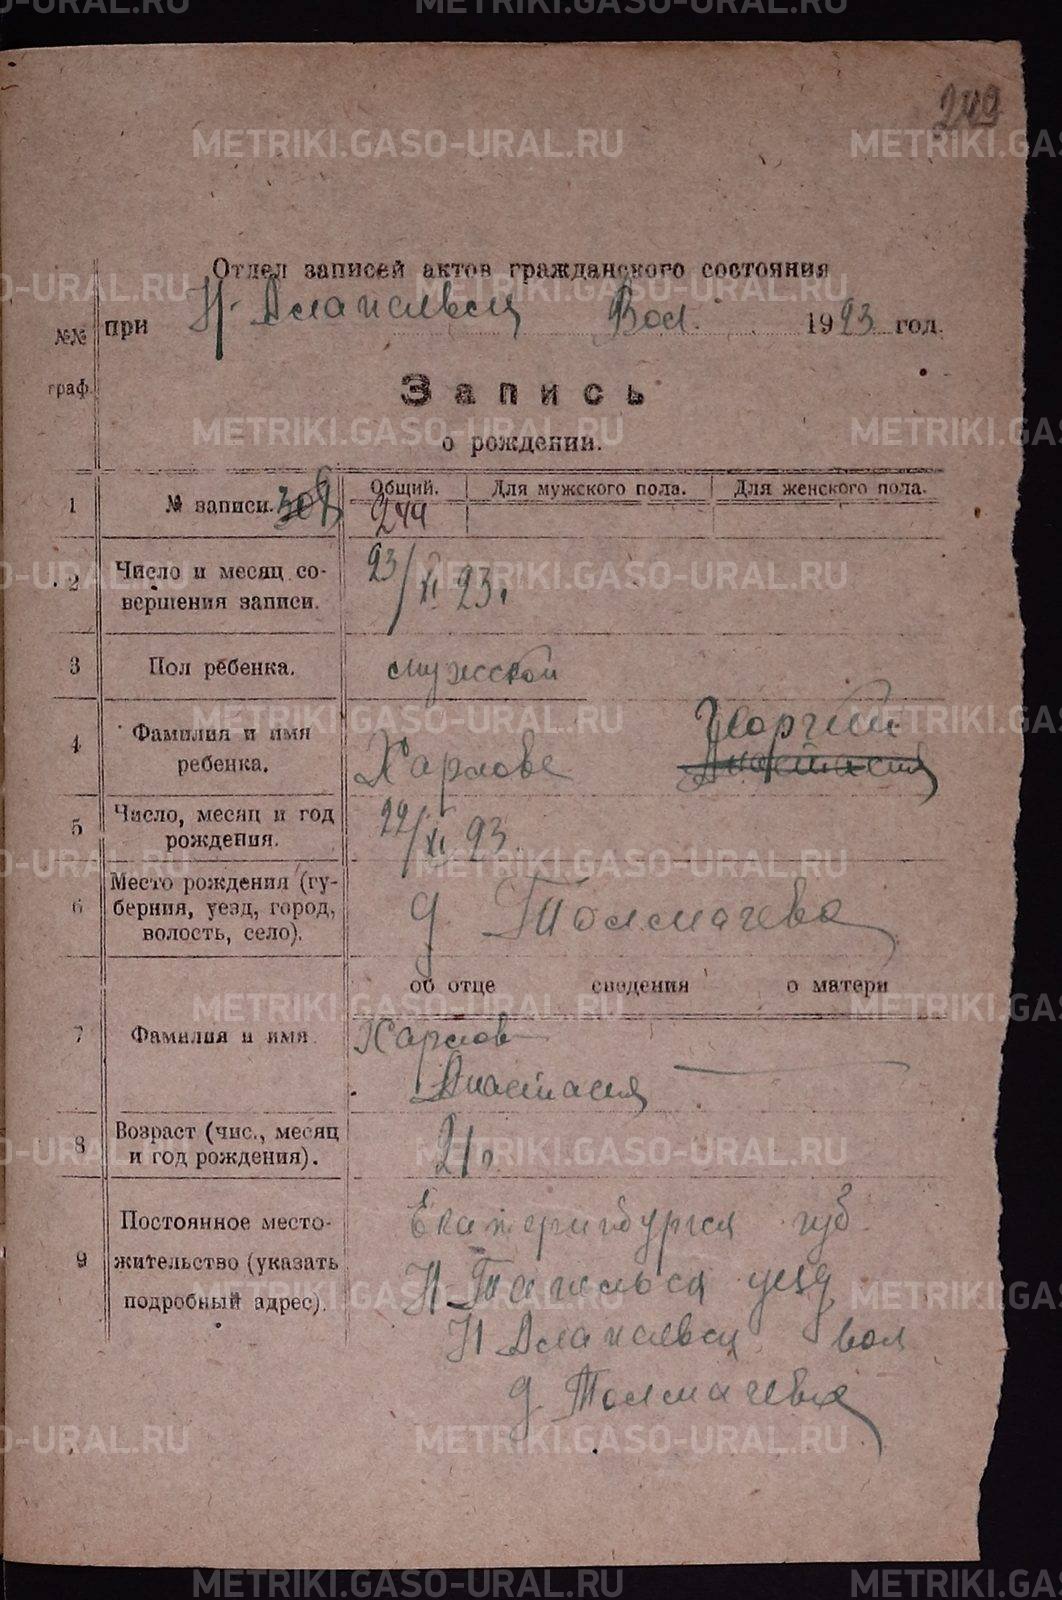 249
Отдел записей актов гражданского состояния
при Н-Алапаевск Вол. 1923 год.
№№ граф.
Запись
о рождении.
1 № записи. Общий. Для мужского пола. Для женского пола.
244
2 Число и месяц со-
вершения записи. 23/XI 23.
3 Пол ребенка. мужской
4 Фамилия и имя
ребенка. Карлова Георгий
Анастасия
5 Число, месяц и год
рождения. 22/XI 23.
6 Место рождения (гу-
берния, уезд, город,
волость, село). д. Толмачева
об отце сведения о матери
7 Фамилия и имя Карлов
Анастасия
8 Возраст (чис., месяц
и год рождения). 21 г.
9 Постоянное место-
жительство (указать
подробный адрес).
Екатеринбургся губ
Н-Тагилься уезд
вол
д. Толмачева
METRIKI.GASO-URAL.RU